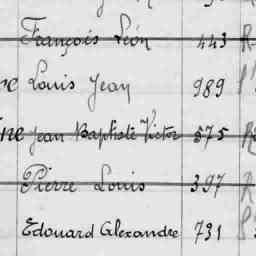 François Léon 443 R
Louis Jean 989
Jean Baptiste Victor 575 R
Pierre Louis 397 R
Edouard Alexandre 731